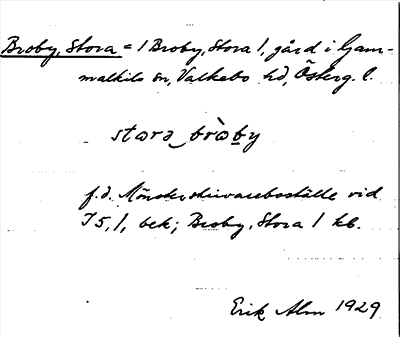 Broby, Stora = / Broby, Stora /, gård i Gam-
malkils sn, Valkebo hd, Österg. l.
stωrа‿brὼby
f.d. Mönsterskrivareboställe vid
I 5, /, bek; Broby, Stora / kb.
Erik Alm 1929